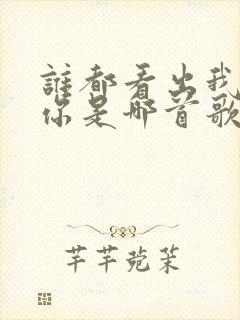 誰都看出我
你是哪首歌
芊芊菀茉